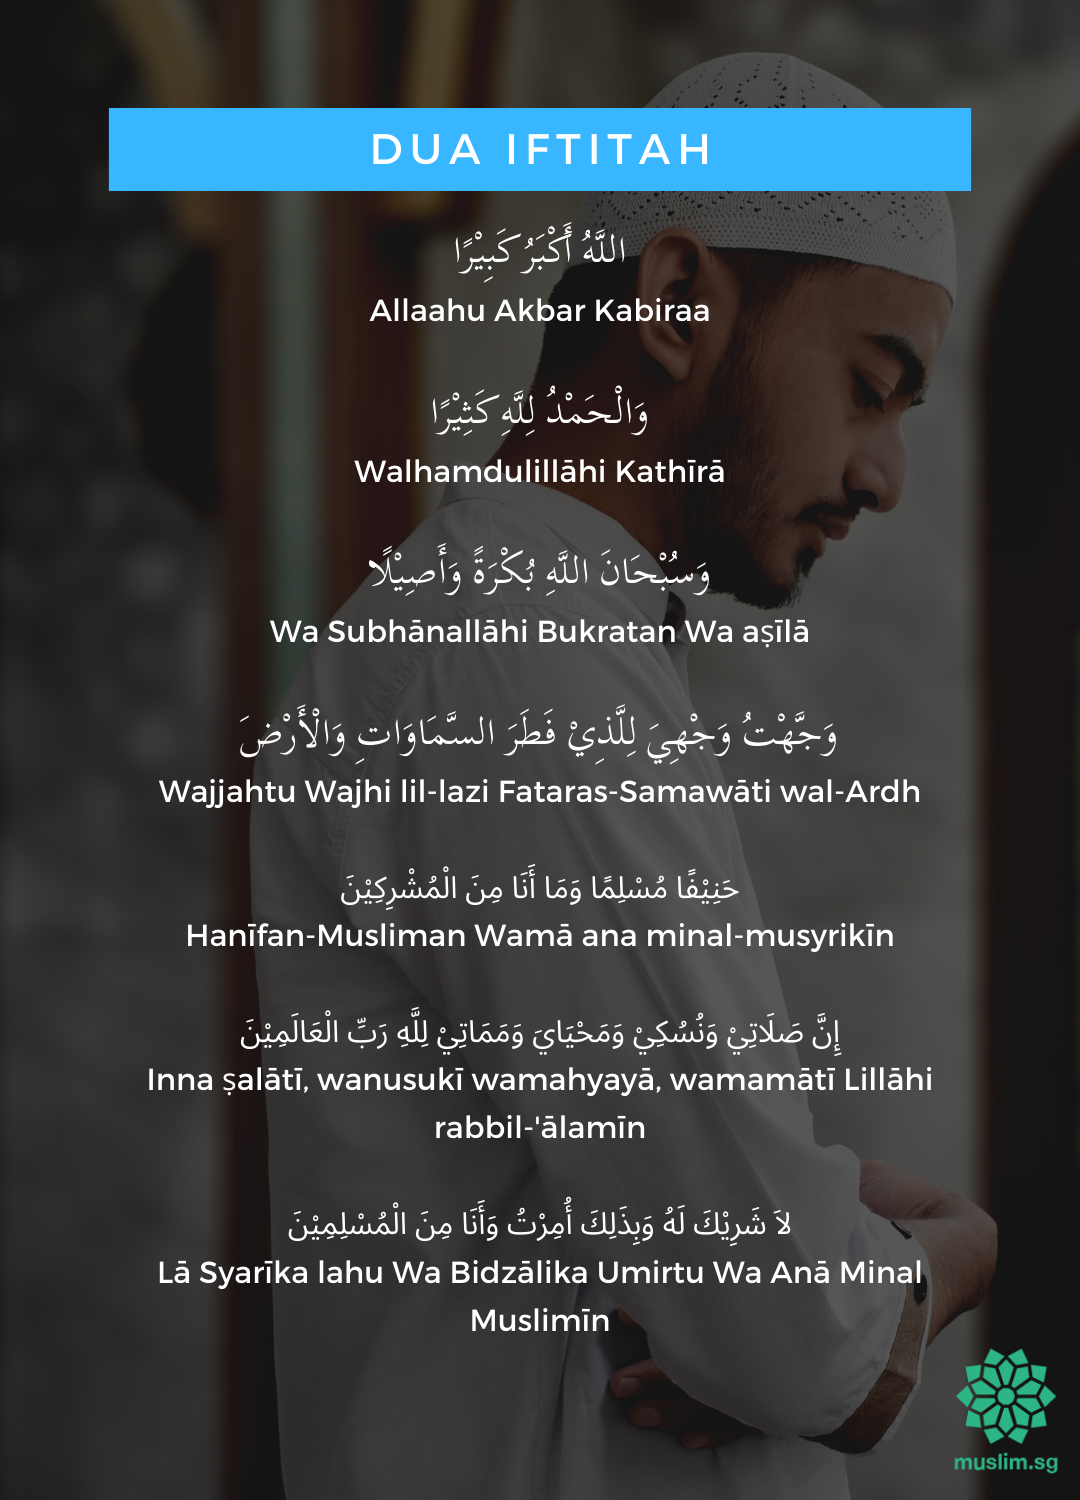 DUA IFTITAH
اللَّهُ أَكْبَرُ كَبِيْرًا
Allaahu Akbar Kabiraa
وَالْحَمْدُ لِلَّهِ كَثِيْرًا
Walhamdulillāhi Kathīrā
وَسُبْحَانَ اللَّهِ بُكْرَةً وَأَصِيْلًا
Wa Subhānallāhi Bukratan Wa aṣīlā
وَجَّهْتُ وَجْهِيَ لِلَّذِيْ فَطَرَ السَّمَاوَاتِ وَالْأَرْضَ
Wajjahtu Wajhi lil-lazi Fataras-Samawāti wal-Ardh
حَنِيْفًا مُسْلِمًا وَمَا أَنَا مِنَ الْمُشْرِكِيْنَ
Hanīfan-Musliman Wamā ana minal-musyrikīn
إِنَّ صَلَاتِيْ وَنُسُكِيْ وَمَحْيَايَ وَمَمَاتِيْ لِلَّهِ رَبِّ الْعَالَمِيْنَ
Inna ṣalātī, wanusukī wamahyayā, wamamātī Lillāhi
rabbil-'ālamīn
لاَ شَرِيْكَ لَهُ وَبِذَلِكَ أُمِرْتُ وَأَنَا مِنَ الْمُسْلِمِيْنَ
Lā Syarīka lahu Wa Bidzālika Umirtu Wa Anā Minal
Muslimīn
muslim.sg